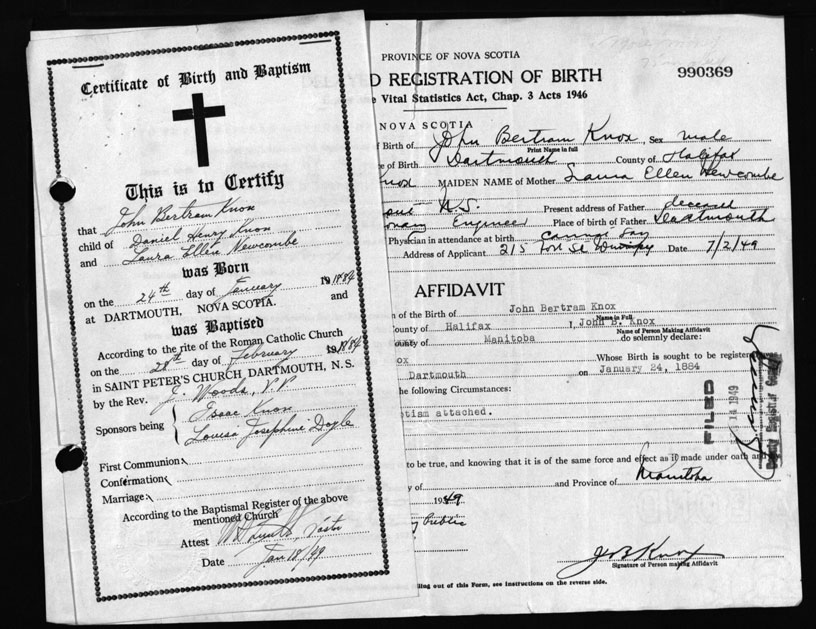 Certificate of Birth and Baptism
This is to Certify
that John Bertram Knox
child of Daniel Henry Knox
and Laura Ellen Newcombe
was Born
on the 24th day of January 1884
at DARTMOUTH, NOVA SCOTIA. and
was Baptised
According to the rite of the Roman Catholic Church
on the 28th day of February 1884
in SAINT PETER'S CHURCH, DARTMOUTH, N. S.
by the Rev. J. Woods, P.P.
Sponsors being Isaac Knox
Louisa Josephine Doyle
First Communion
Confirmation
Marriage
According to the Baptismal Register of the above
mentioned Church
Attest
Date Jan 18/49
PROVINCE OF NOVA SCOTIA
D REGISTRATION OF BIRTH
990369
e Vital Statistics Act, Chap. 3 Acts 1946
NOVA SCOTIA
f Birth of John Bertram Knox, Sex male
Print Name in full
e of Birth Dartmouth County of Halifax
Knox MAIDEN NAME of Mother Laura Ellen Newcombe
N.S. Present address of Father deceased
Engineer Place of birth of Father Dartmouth
Physician in attendance at birth cannot say
Address of Applicant 215 St Date 7/2/49
AFFIDAVIT
n of the Birth of John Bertram Knox
Name in Full
ounty of Halifax I, John B. Knox
Name of Person Making Affidavit
of Manitoba do solemnly declare:
ox Whose Birth is sought to be register
Dartmouth on January 24, 1884
he following Circumstances:
tism attached.
FILED
14 1949
Deputy Registrar
to be true, and knowing that it is of the same force and effect as if made under oath and
y of and Province of Manitoba
1949
y Public
J B Knox
Signature of Person making Affidavit
ling out of this Form, see instructions on the reverse side.